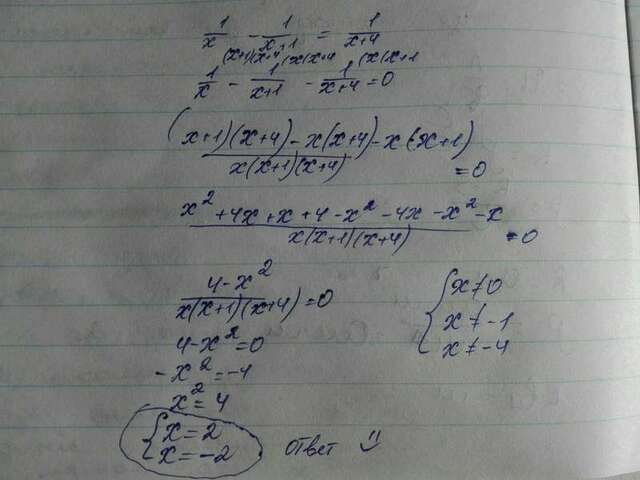 1/x - 1/x+1 = 1/x+4
(x+1)(x+4 (x(x+4 (x(x+1
1/x - 1/x+1 - 1/x+4 = 0
(x+1)(x+4) - x(x+4) - x(x+1) / x(x+1)(x+4) = 0
x² + 4x + x + 4 - x² - 4x - x² - x / x(x+1)(x+4) = 0
4 - x² / x(x+1)(x+4) = 0
{ x ≠ 0
x ≠ -1
x ≠ -4
4 - x² = 0
- x² = -4
x² = 4
{ x = 2
x = -2
ответ